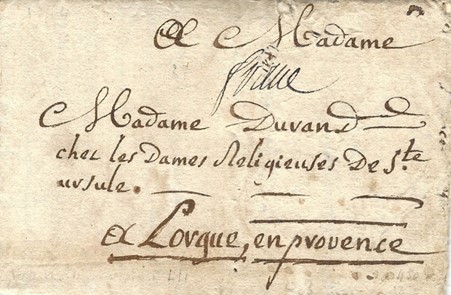 A Madame
franc
Madame Durand
chez les Dames Religieuses De Ste
ursule.
A Lorgue, en provence